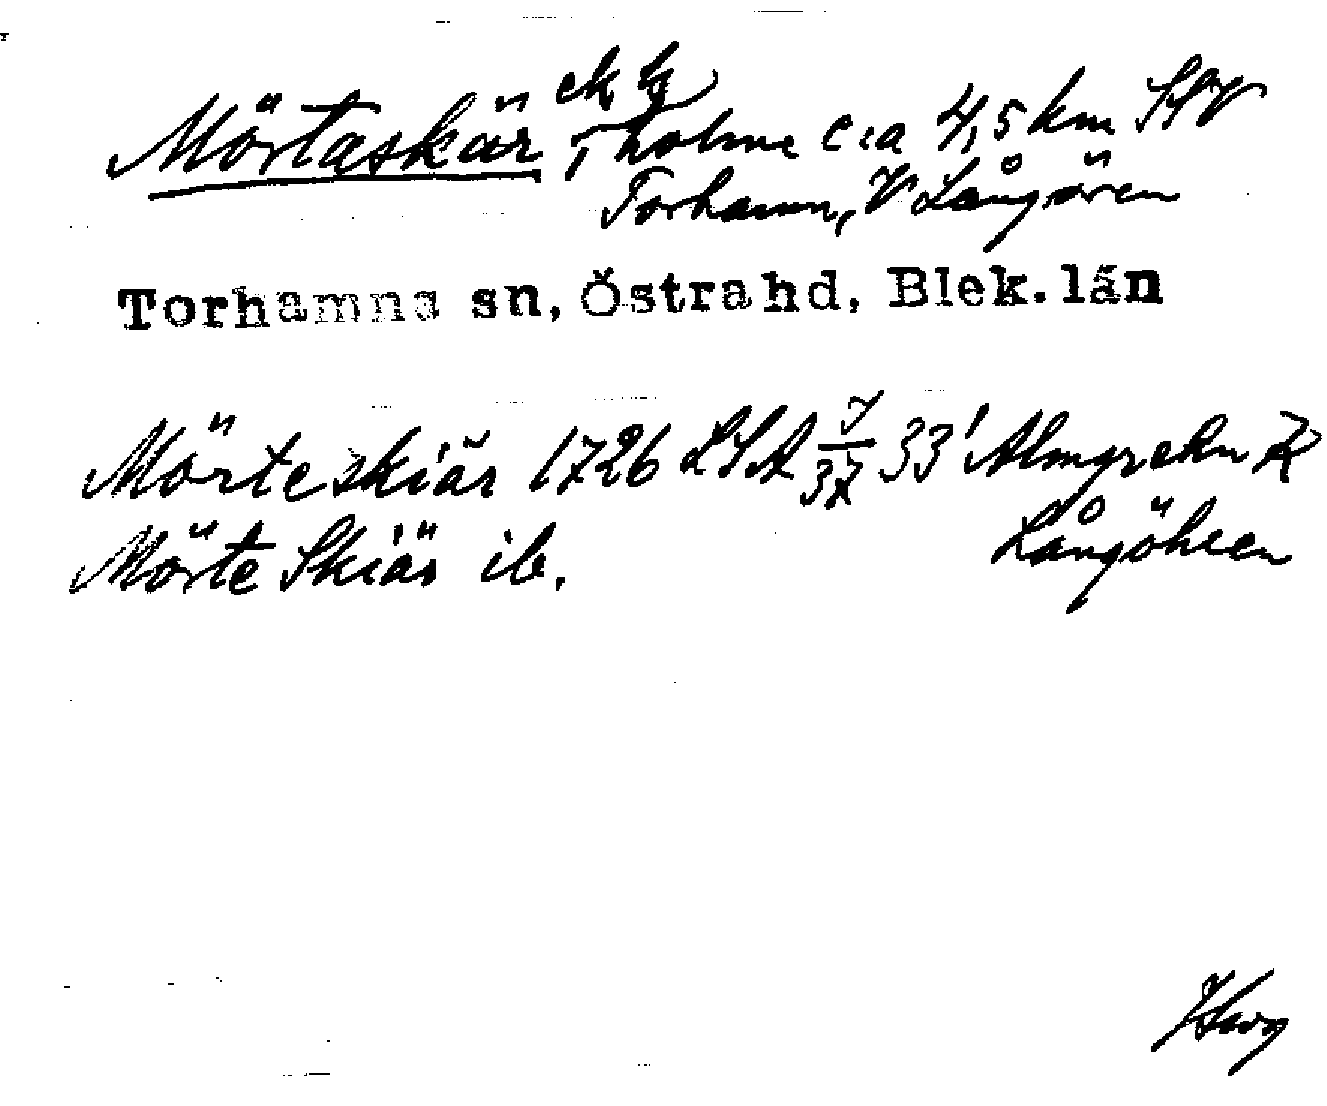 Mörtaskär ek
holme c:a 4,5 km SSV
Torhamn, V Långören
Torhamns sn, Östra hd, Blek. län
Mörteskiär 1726 LSA 33' Almgrehn
Långöhren
Mörte Skiär ib.